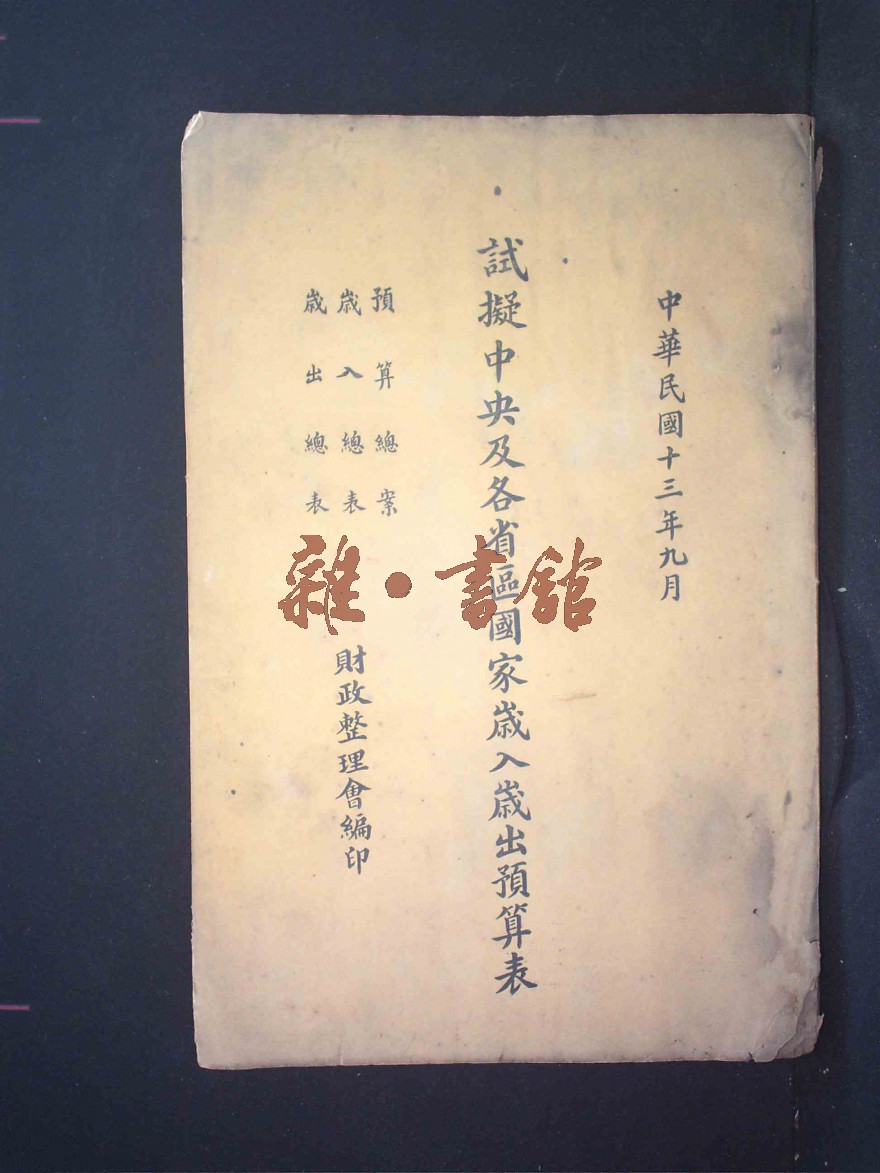 中華民國十三年九月
試擬中央及各省區國家歲入歲出預算表
預算總案
歲入總表
歲出總表
財政整理會編印
雜·書館